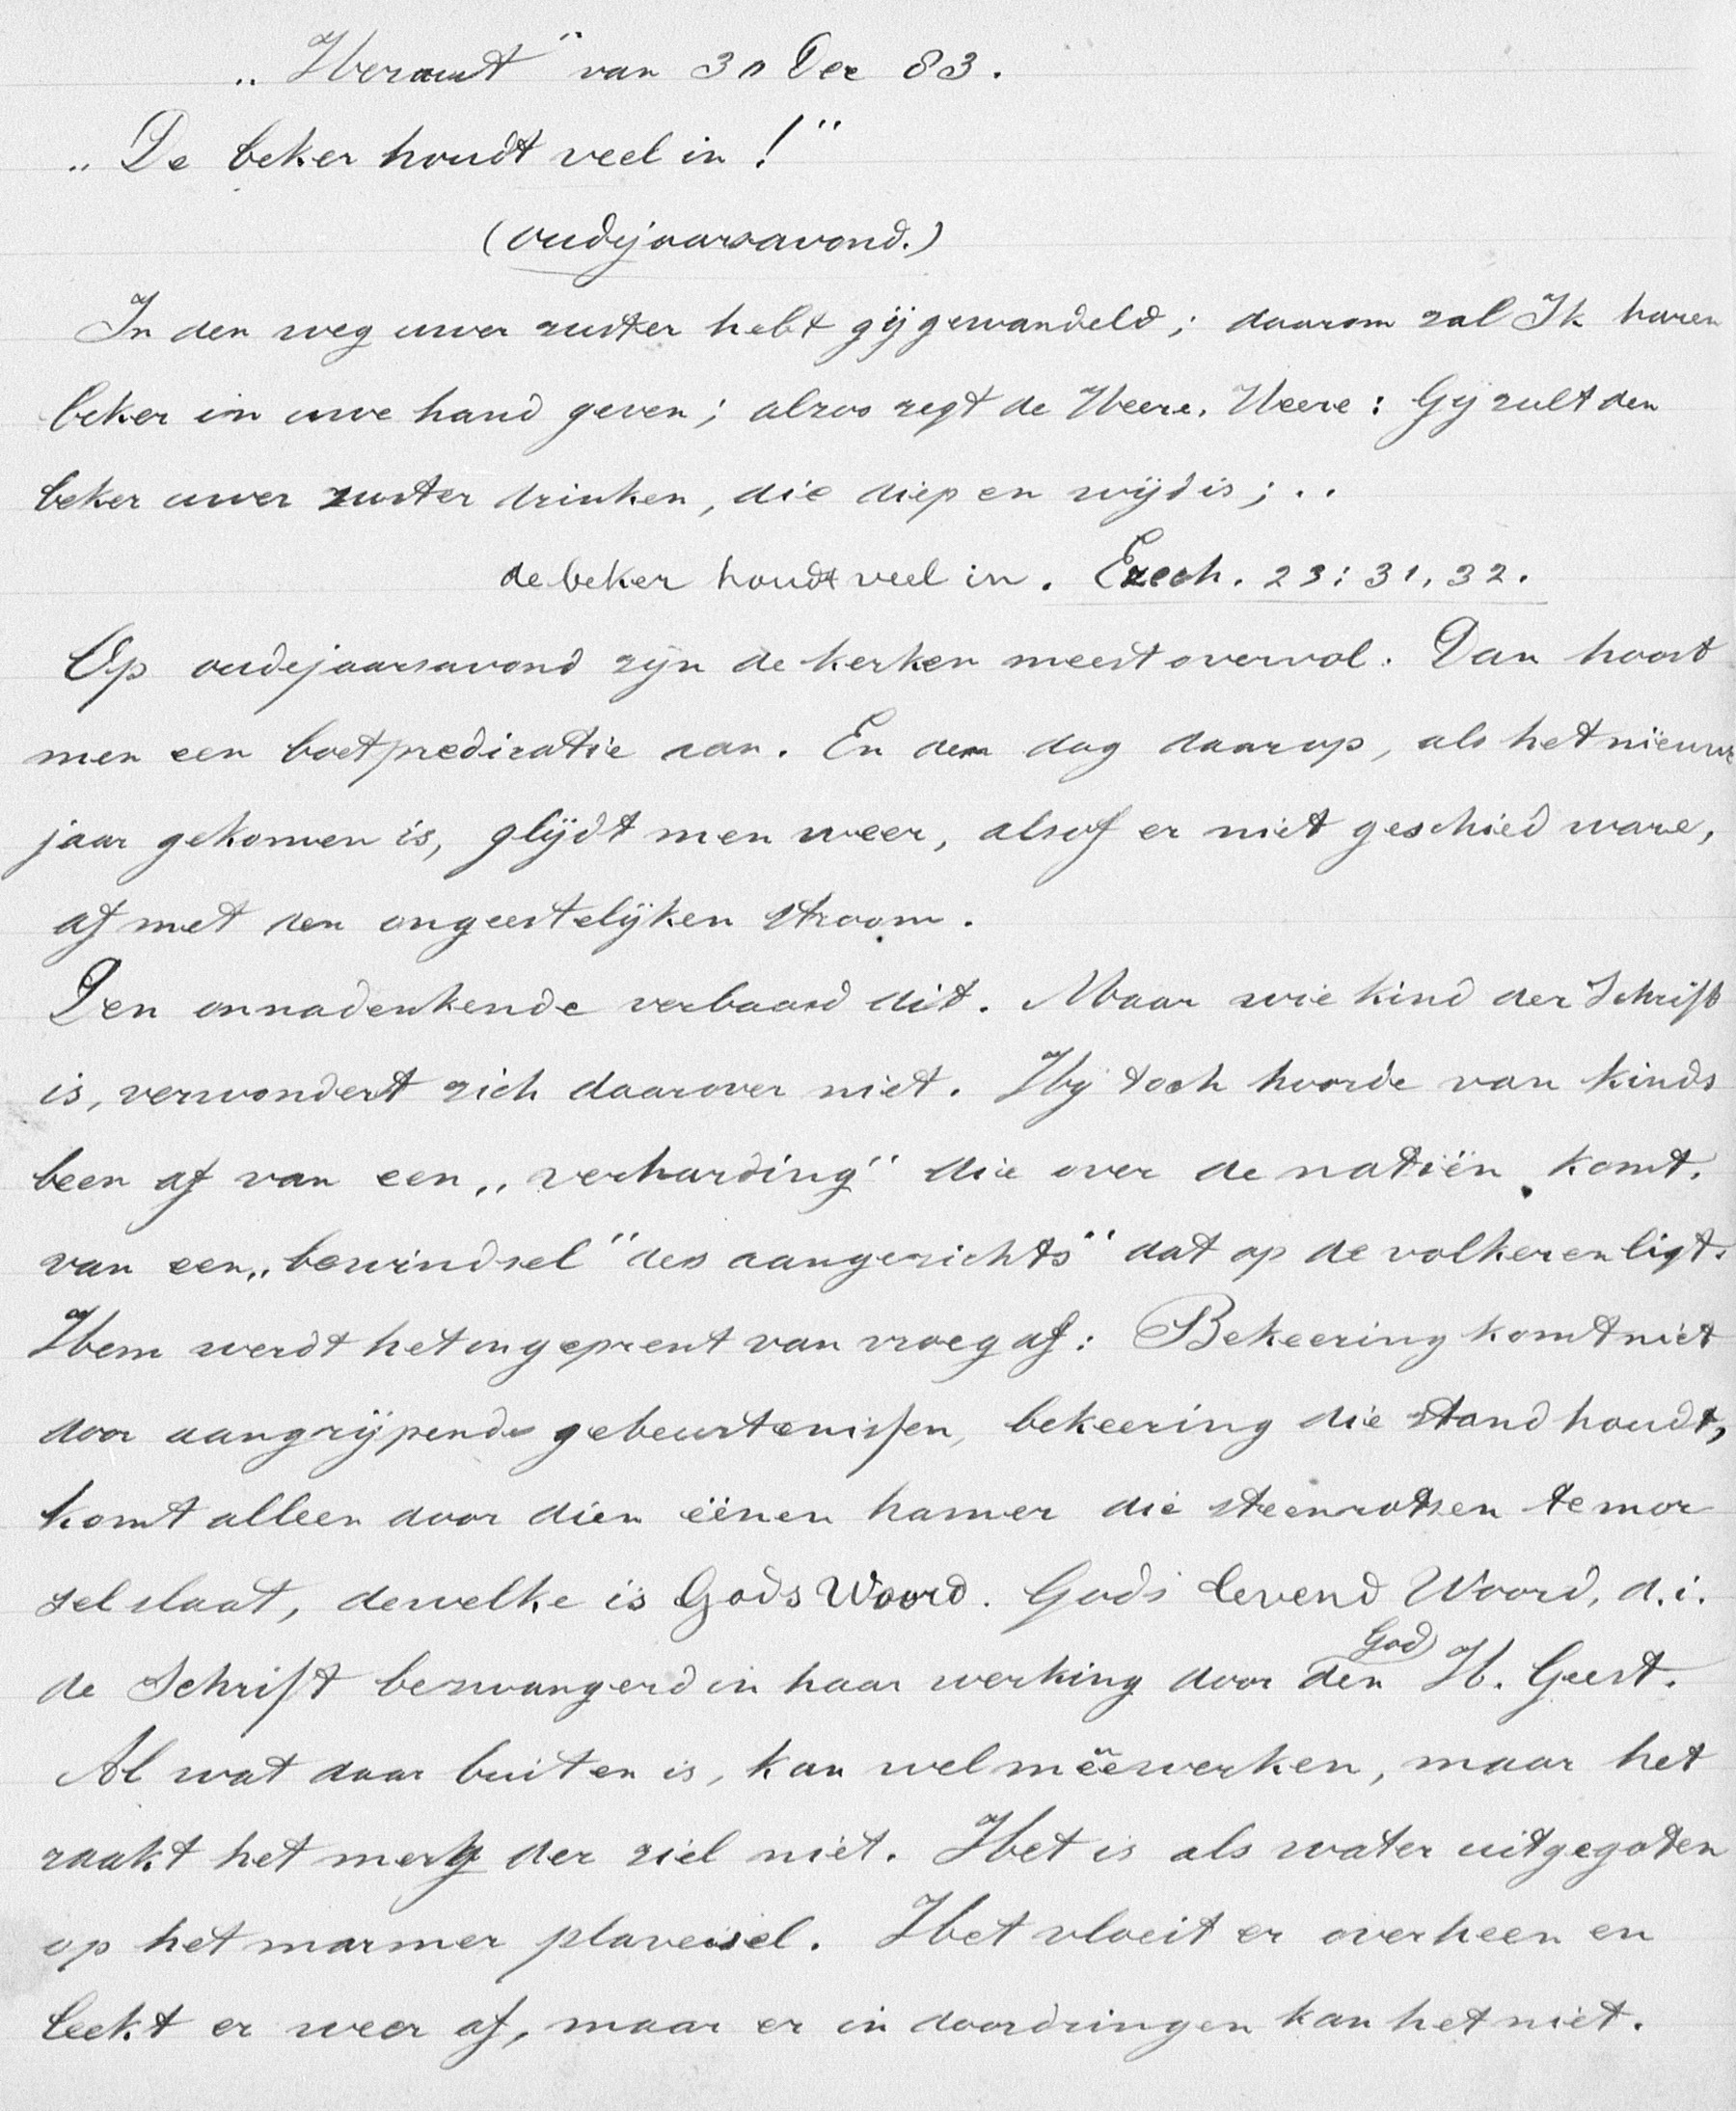 „Heraut" van 30 Dec 83.
„De beker houdt veel in!"
(oudejaarsavond.)
In den weg uwer zuster hebt gij gewandeld; daarom zal Ik haren
beker in uwe hand geven; alzoo zegt de Heere, Heere: Gij zult den
beker uwer zuster drinken, die diep en wijd is; ..
de beker houdt veel in. Ezech. 23: 31, 32.
Op oudejaarsavond zijn de kerken meest overvol. Dan hoort
men een boetpredicatie aan. En den dag daarop, als het nieuwe
jaar gekomen is, glijdt men weer, alsof er niet geschied ware,
af met den ongeestelijken stroom.
Den onnadenkende verbaasd dit. Maar wie kind der Schrift
is, verwondert zich daarover niet. Hij toch hoorde van kinds
been af van een „verharding" die over de natiën komt,
van een „bewindsel" des aangezichts" dat op de volkeren ligt.
Hem werdt het ingeprent van vroeg af: Bekeering komt niet
door aangrijpende gebeurtenissen, bekeering die stand houdt,
komt alleen door dien éénen hamer die steenrotsen te mor
sel slaat, dewelke is Gods Woord. Gods levend Woord, d.i.
de Schrift bezwangerd in haar werking door God den H. Geest.
Al wat daar buiten is, kan wel meêwerken, maar het
raakt het merg der ziel niet. Het is als water uitgegoten
op het marmer plaveisel. Het vloeit er overheen en
leekt er weer af, maar er in doordringen kan het niet.